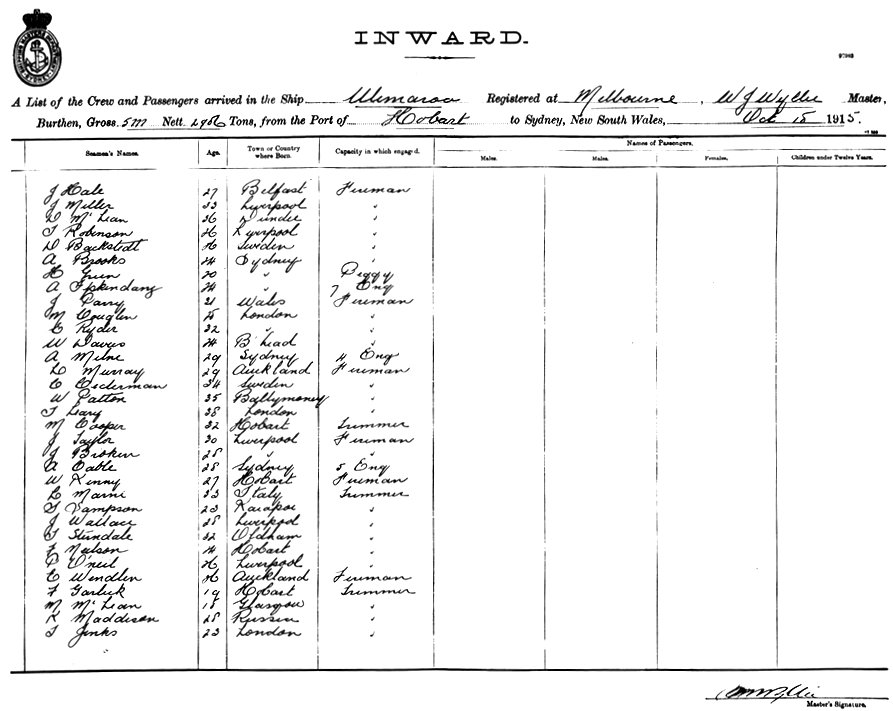 INWARD.
97903
A List of the Crew and Passengers arrived in the Ship Ulimaroa Registered at Melbourne, W J Wyllie Master,
Burthen, Gross 5777 Nett 2986 Tons, from the Port of Hobart to Sydney, New South Wales, Oct 15 1915.
Seamen's Names. Age. Town or Country where Born. Capacity in which engaged. Names of Passengers.
Males. Males. Females. Children under Twelve Years.
J Hale 27 Belfast Fireman
J Miller 33 Liverpool "
D McLean 36 Dundee "
T Robinson Liverpool "
D Backstedt Sweden "
A Brooks 24 Sydney "
H Green 20 " Peggy
A 24 " 7 Eng
J Parry 21 Wales Fireman
M London "
C Ryder 32 " "
W Davies 24 B'Head "
A Milne 29 Sydney 4 Eng
D Murray 29 Auckland Fireman
C Oscterman 34 Sweden "
W Patton 35 Ballymoney "
T Leary 38 London "
M Cooper 32 Hobart Trimmer
J Taylor 30 Liverpool Fireman
J Broken 28 " "
A Cable 28 Sydney 5 Eng
W Kenny 27 Hobart Fireman
L Marni 33 Italy Trimmer
S Sampson 23 Kaiapoi "
J Wallace 28 Liverpool "
T Stendale 32 Oldham "
F Neilson Hobart "
P O'Neil Liverpool "
C Wendlen Auckland Fireman
F Garlick 19 Hobart Trimmer
M McLean 18 Glasgow "
K Maddison 28 Russia "
T Jinks 23 London "
Master's Signature.